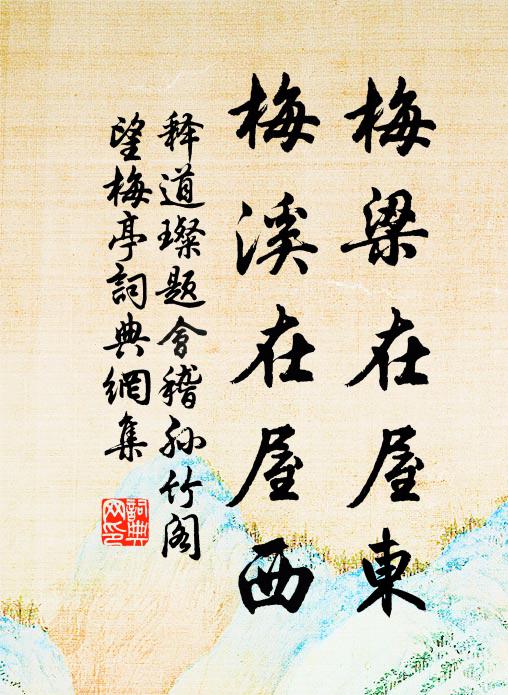 梅梁在屋東
梅溪在屋西
释道璨题會稽孙竹阁
望梅亭詞典網集
詞典
网印